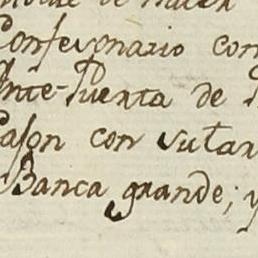 de hacer
Confesonario con
Ante-Puerta de
Cajon con su tar
Banca grande; y